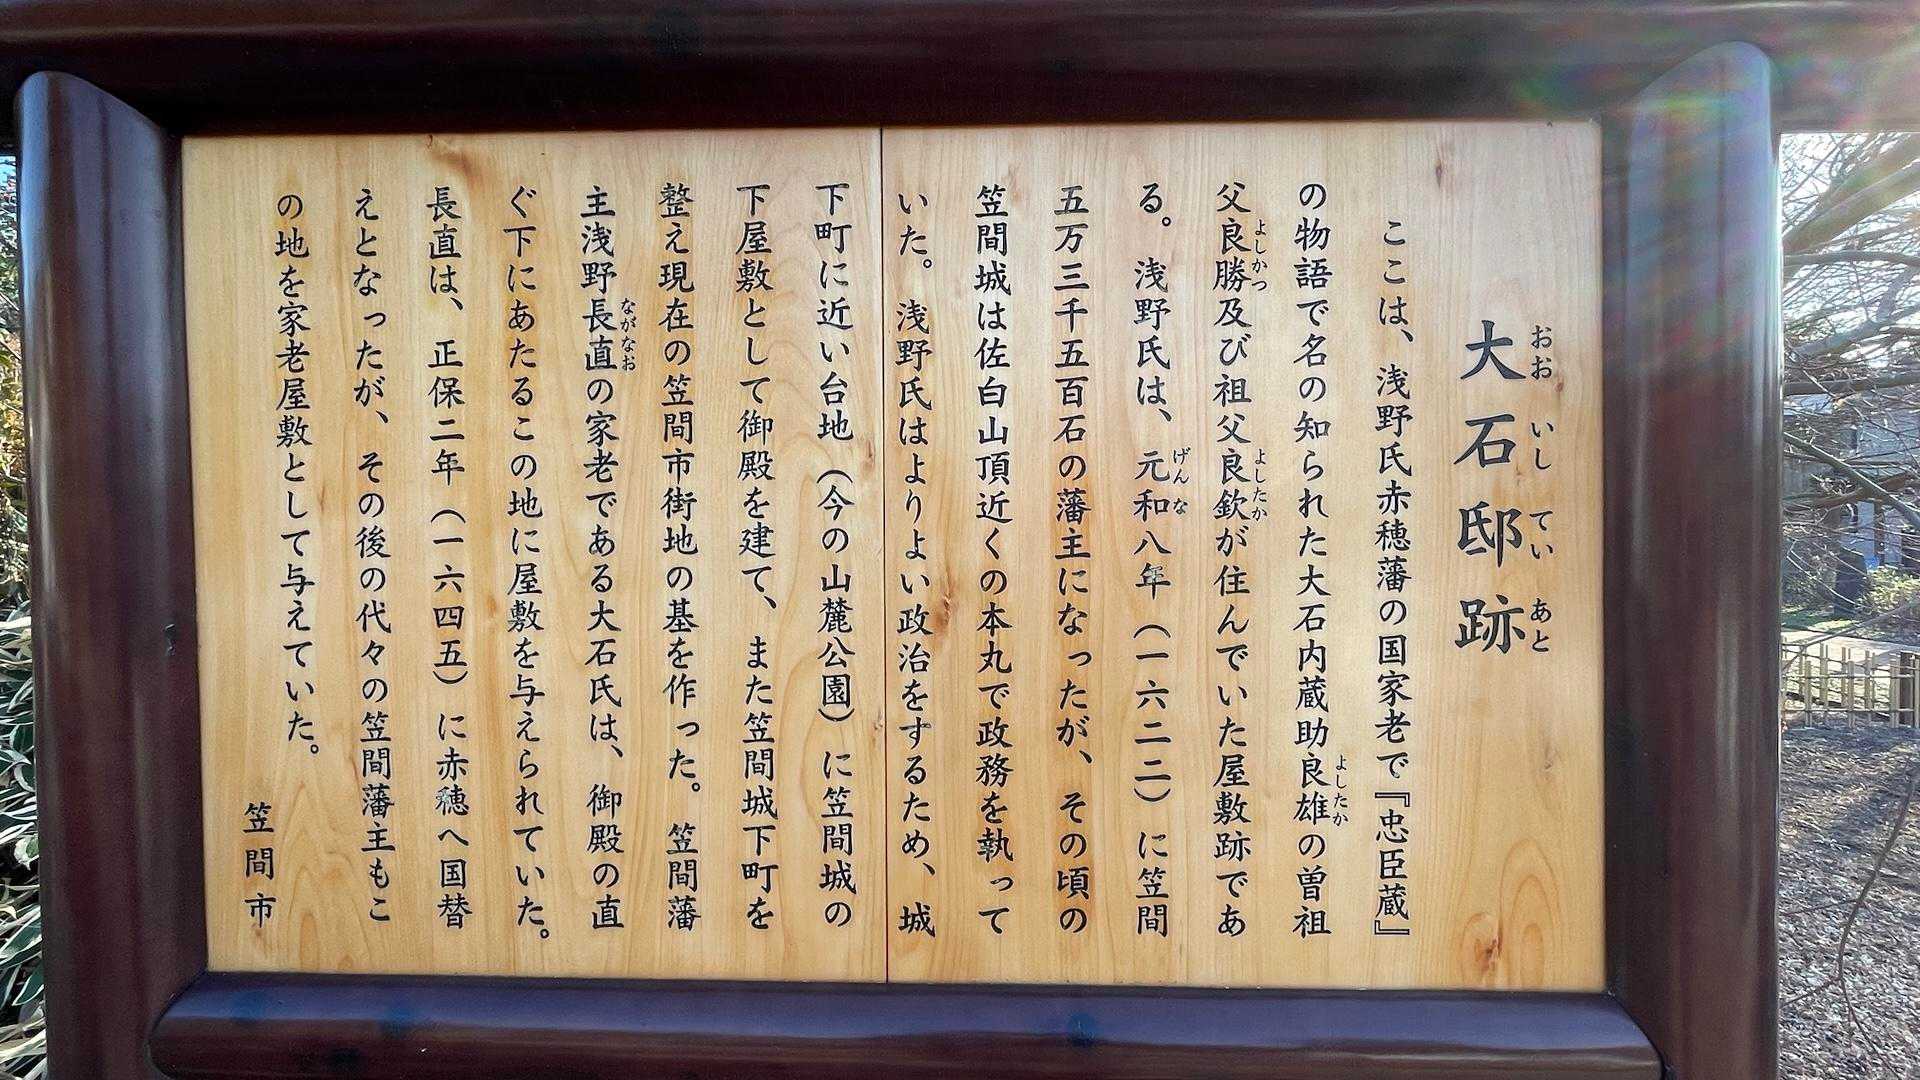 大石邸跡
おお いし てい あと
ここは、浅野氏赤穂藩の国家老で『忠臣蔵』
の物語で名の知られた大石内蔵助良雄の曽祖
よしたか
父良勝及び祖父良欽が住んでいた屋敷跡であ
よしかつ よしたか
る。浅野氏は、元和八年（一六二二）に笠間
げんな
五万三千五百石の藩主になったが、その頃の
笠間城は佐白山頂近くの本丸で政務を執って
いた。浅野氏はよりよい政治をするため、城
下町に近い台地（今の山麓公園）に笠間城の
下屋敷として御殿を建て、また笠間城下町を
整え現在の笠間市街地の基を作った。笠間藩
主浅野長直の家老である大石氏は、御殿の直
ながなお
ぐ下にあたるこの地に屋敷を与えられていた。
長直は、正保二年（一六四五）に赤穂へ国替
えとなったが、その後の代々の笠間藩主もこ
の地を家老屋敷として与えていた。
笠間市